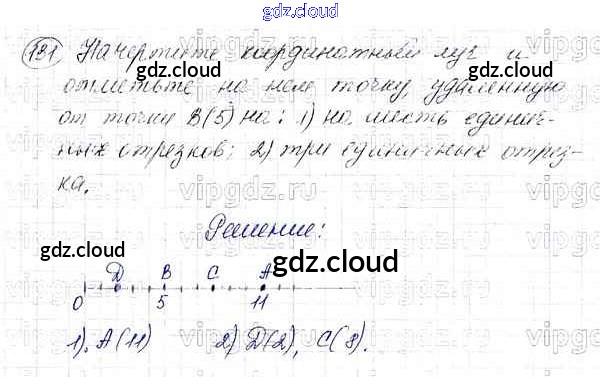 gdz.cloud
131 Начертите координатный луч и
отметьте на нем точку, удаленную
от точки B(5) на: 1) на шесть единич-
ных отрезков; 2) три единичных отрез-
ка.
Решение:
gdz.cloud
gdz.cloud
gdz.cloud
gdz.cloud
D B C A
0 5 11
1). A(11) 2) D(2), C(8).
gdz.cloud